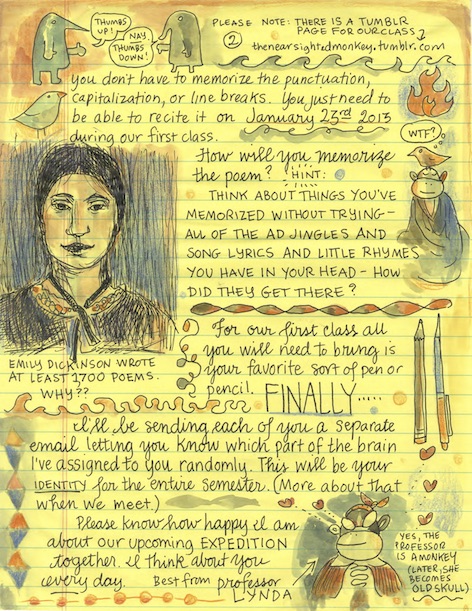 THUMBS UP!
NAY, THUMBS DOWN!
PLEASE NOTE: THERE IS A TUMBLR
PAGE FOR OUR CLASS
2
thenearsightedmonkey.tumblr.com
you don't have to memorize the punctuation,
capitalization, or line breaks. You just need to
be able to recite it on January 23rd 2013
during our first class.
WTF?
How will you memorize
the poem? HINT:
THINK ABOUT THINGS YOU'VE
MEMORIZED WITHOUT TRYING-
ALL OF THE AD JINGLES AND
SONG LYRICS AND LITTLE RHYMES
YOU HAVE IN YOUR HEAD - HOW
DID THEY GET THERE?
EMILY DICKINSON WROTE
AT LEAST 1700 POEMS.
WHY??
For our first class all
you will need to bring is
your favorite sort of pen or
pencil. FINALLY.....
I'll be sending each of you a separate
email letting you know which part of the brain
I've assigned to you randomly. This will be your
IDENTITY for the entire semester. (More about that
when we meet.)
Please know how happy I am
about our upcoming EXPEDITION
together. I think about you
every day. Best from professor
LYNDA
YES, THE
PROFESSOR
IS A MONKEY
(LATER, SHE
BECOMES
OLD SKULL)